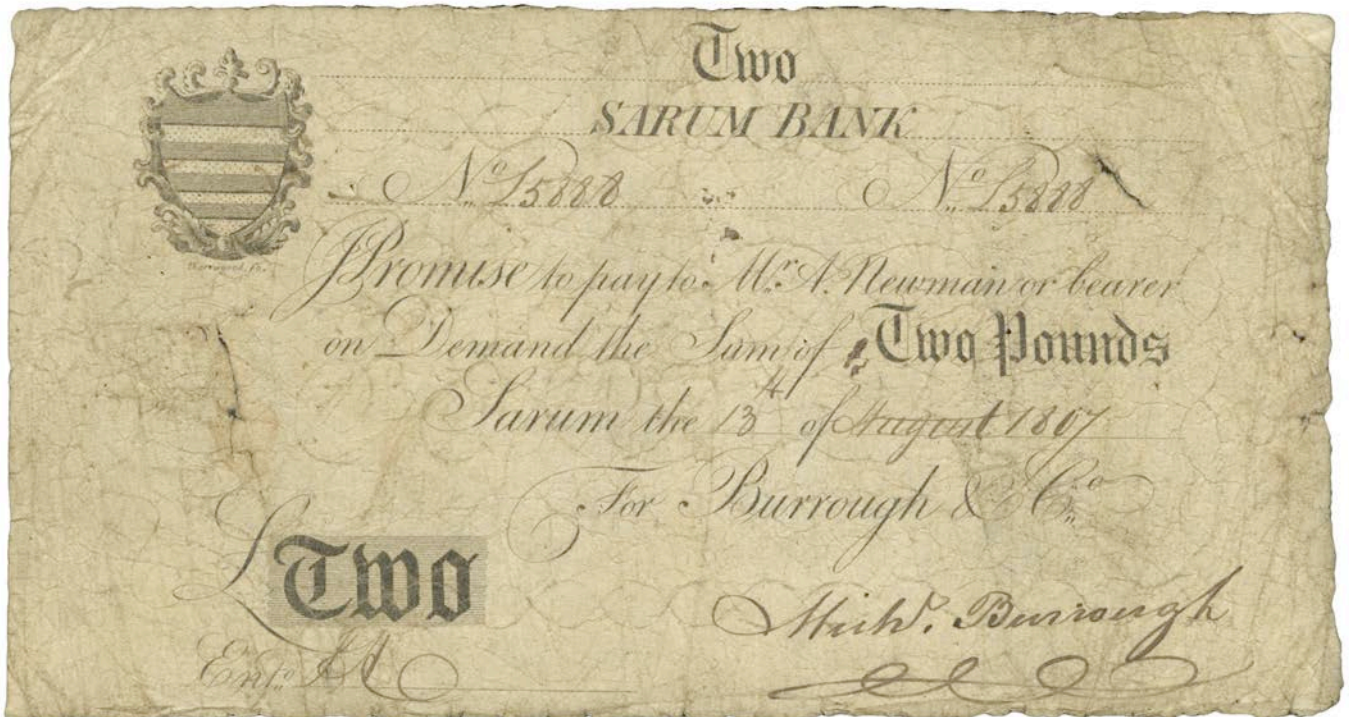 Two
SARUM BANK
No. 15888 No. 15888
I Promise to pay to Mr. A. Newman or bearer
on Demand the Sum of Two Pounds
Sarum the 13th of August 1807
For Burrough & Co.
£ Two
Michl. Burrough
Entd.